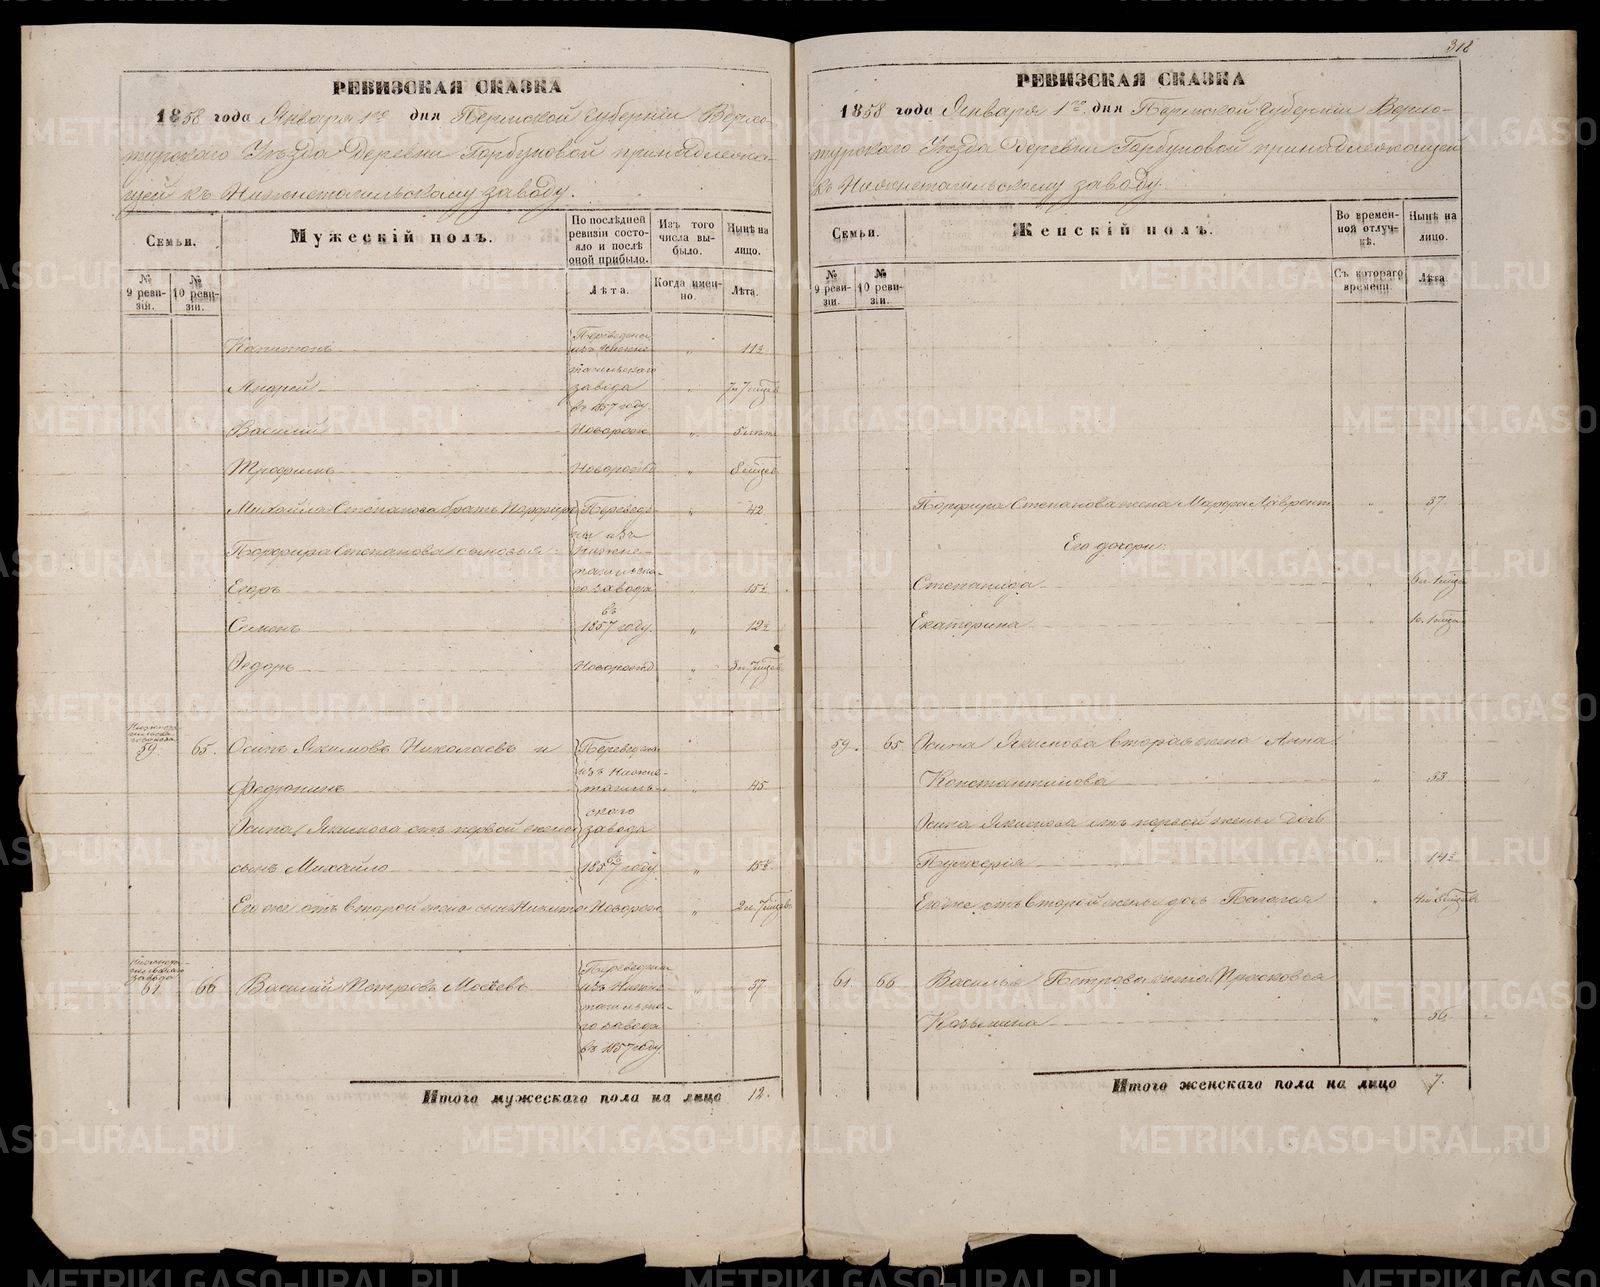 318
РЕВИЗСКАЯ СКАЗКА
1858 года Января 1го дня Пермской Губерніи Верхо-
турскаго Уѣзда Деревни Горбуновой принадлежа-
щей къ Нижнетагильскому заводу.
Семьи.
Мужескій полъ.
По послѣдней ревизіи состояло и послѣ оной прибыло.
Изъ того числа выбыло.
Нынѣ на лицо.
№ 9 ревизіи.
№ 10 ревизіи.
Лѣта.
Когда именно.
Лѣта.
Капитонъ
Переведены изъ Нижнетагильскаго завода въ 1857 году.
Андрей
Василій Новорожд
Трофимъ Новорожд
Михайла Степанова братъ Порфиръ Переведены изъ Нижнетагильскаго завода въ 1857 году. 42
Порфира Степанова сыновья
Егоръ
Семенъ
Ѳедоръ Новорожд
59 65. Осипъ Якимовъ Николаевъ и
Федронинъ 45
Переведены изъ Нижнетагильскаго завода 1857 году.
Осипа Якимова отъ первой жены
сынъ Михайло
Его же отъ второй жены сынъ Никита Новорожд
Нижнетагильскаго завода
61 66 Василій Петровъ Мосѣевъ 57
Переведенъ изъ Нижнетагильскаго завода въ 1857 году.
Итого мужескаго пола на лицо 12.
РЕВИЗСКАЯ СКАЗКА
1858 года Января 1го дня Пермской Губерніи Верхо-
турскаго Уѣзда Деревни Горбуновой принадлежащей
къ Нижнетагильскому заводу.
Семьи.
Женскій полъ.
Во временной отлучкѣ.
Нынѣ на лицо.
№ 9 ревизіи.
№ 10 ревизіи.
Съ котораго времени.
Лѣта
Порфира Степанова жена Марфа Лаврент 37
Его дочери
Степанида
Екатерина
59. 65. Осипа Якимова вторая жена Анна
Константинова 33
Осипа Якимова отъ первой жены дочь
Пульхерія
Его же отъ второй жены дочь Пелагея
61. 66 Василья Петрова жена Прасковья
Козьмина 56
Итого женскаго пола на лицо 7.
METRIKI.GASO-URAL.RU